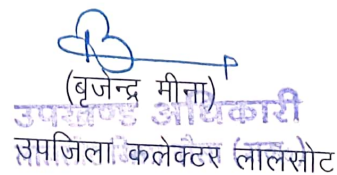 (बृजेन्द्र मीना)
उपखण्ड अधिकारी
उपजिला कलेक्टर लालसोट